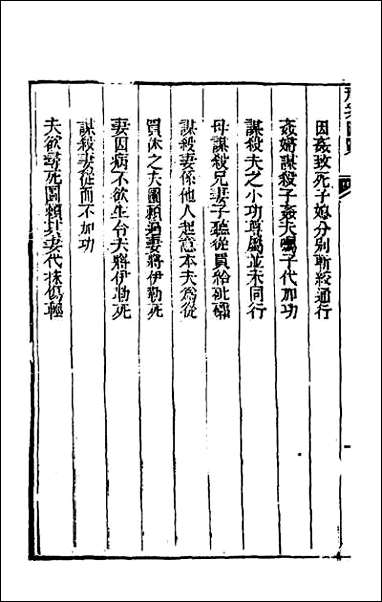 因姦致死子媳分別斬絞通行
姦婦謀殺子姦夫囑子代加功
謀殺夫之小功尊屬並未同行
母謀殺兄妻子聽從買給砒礵
謀殺妻係他人起意本夫爲從
買休之夫圖賴過妻將伊勒死
妻因病不欲生台夫將伊勒死
謀殺妻從而不加功
夫欲尋死圖賴其妻代抹傷輕